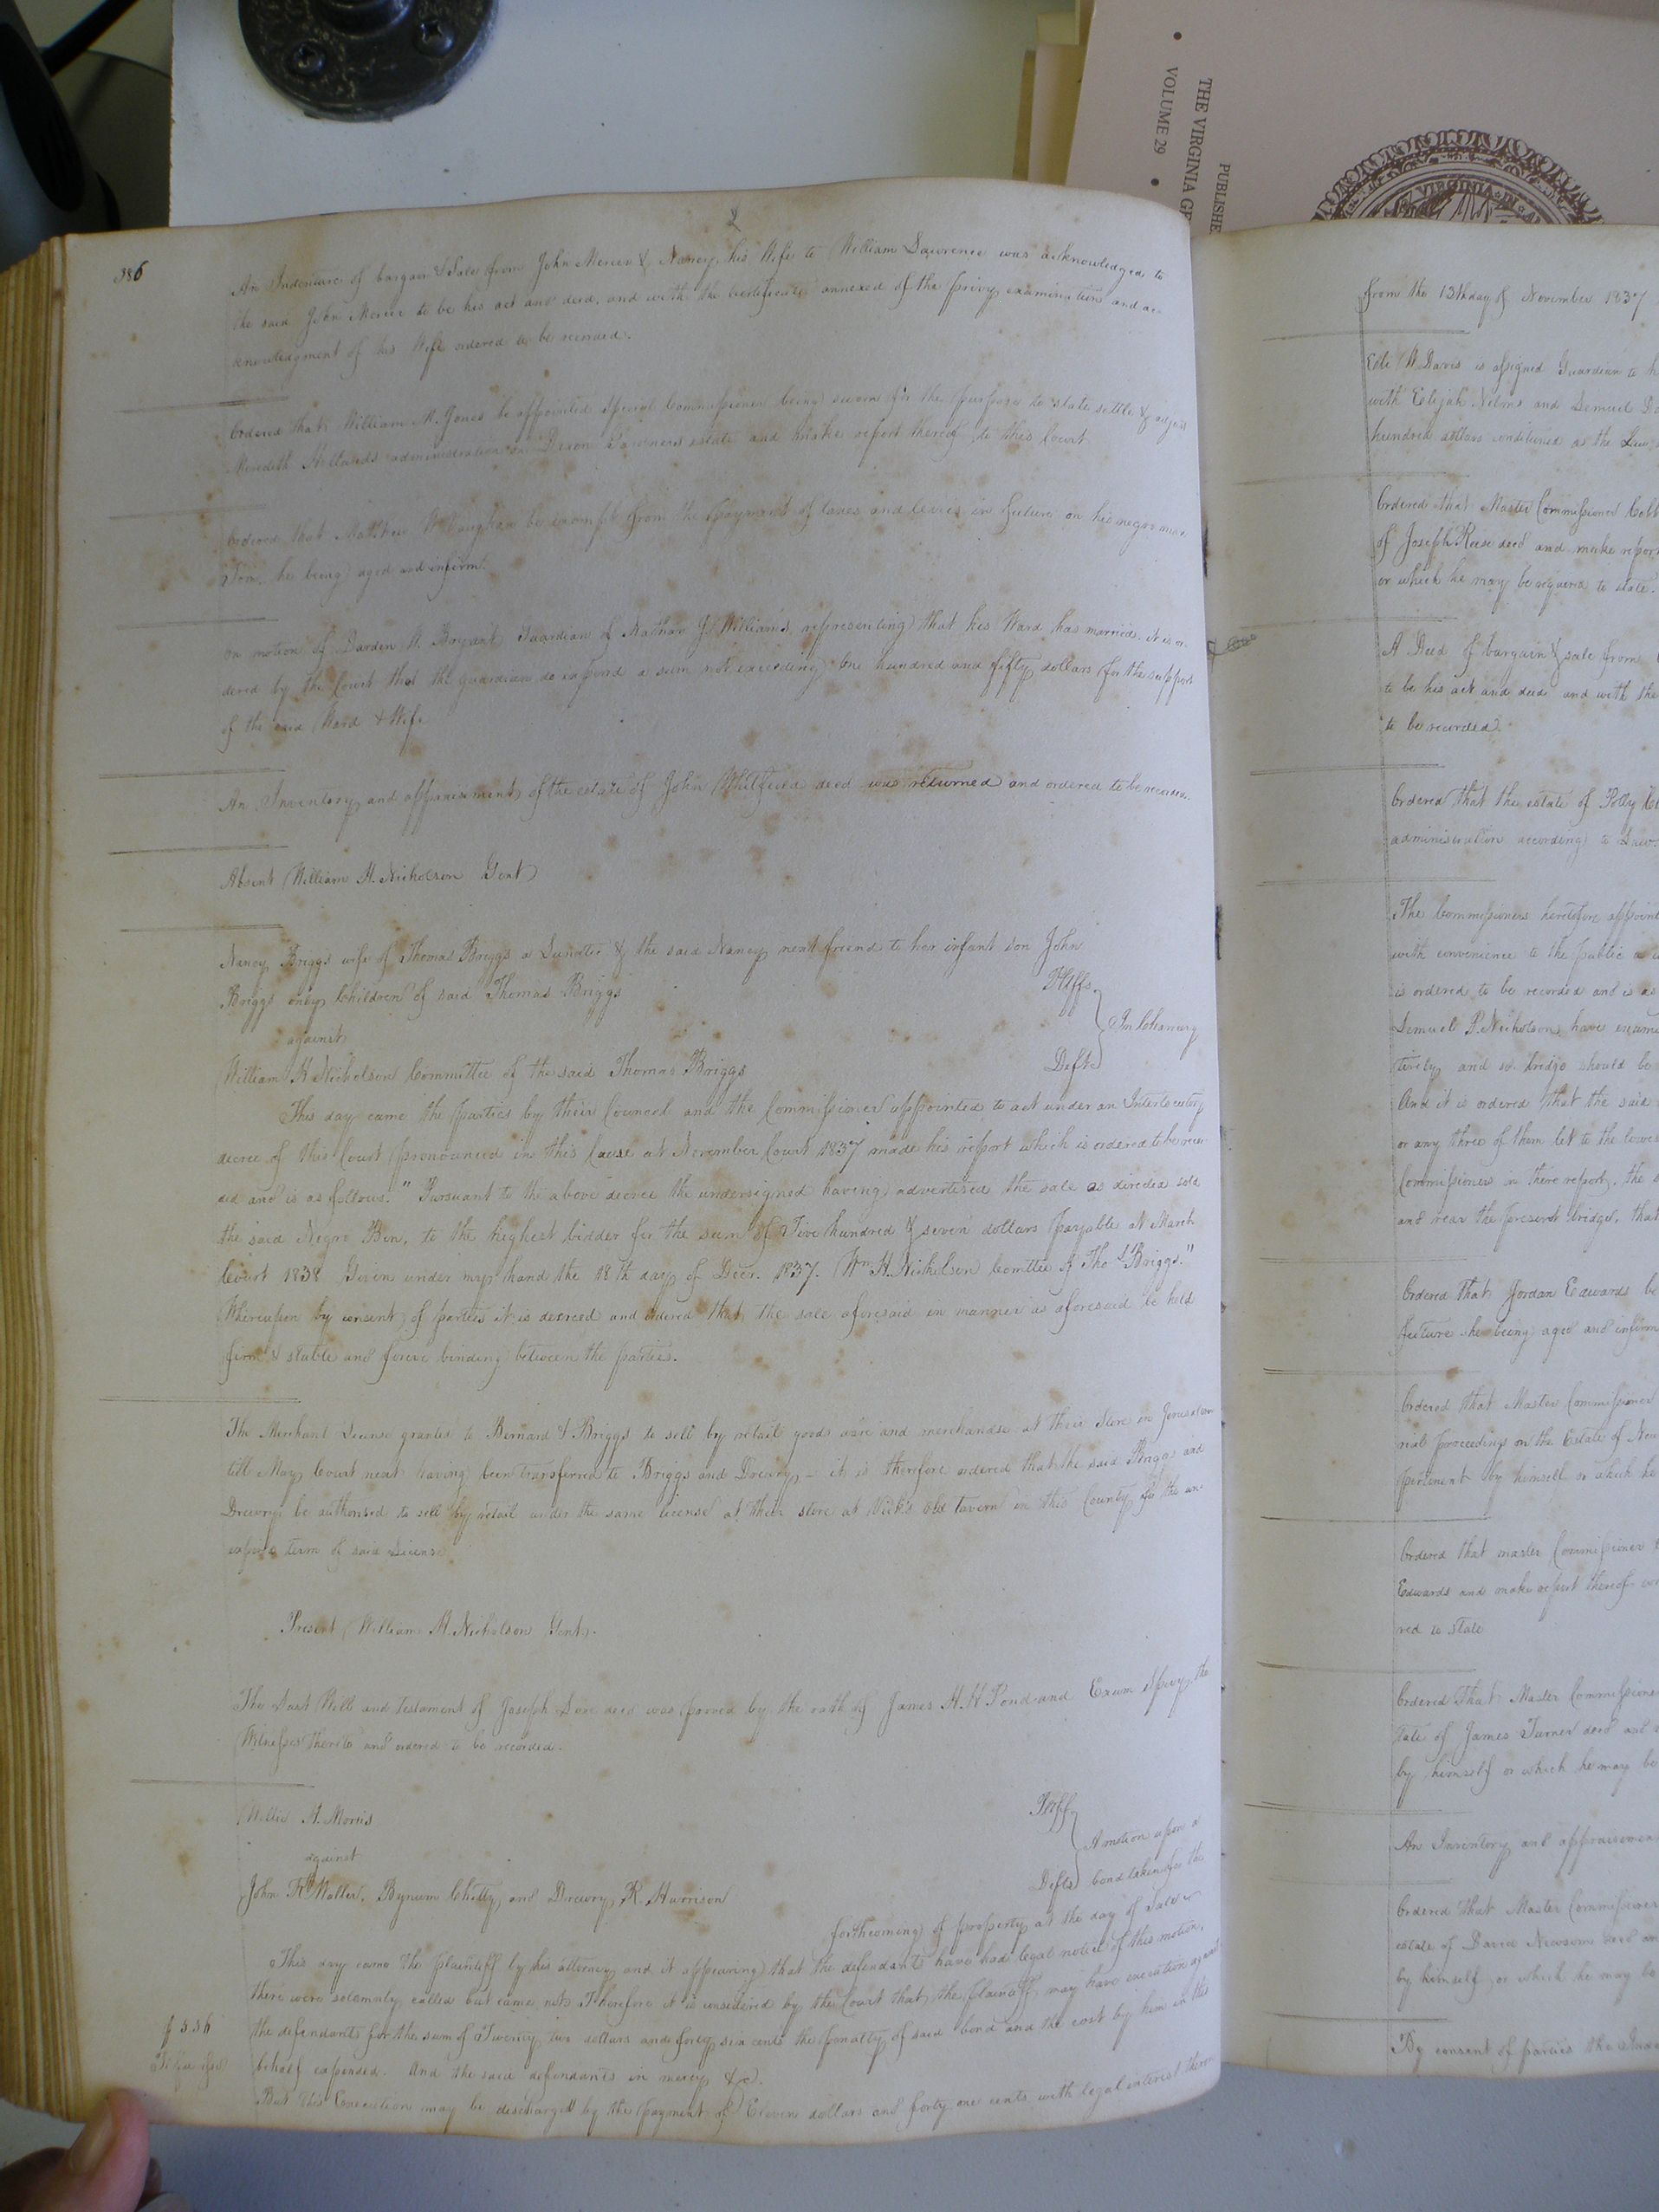 THE VIRGINIA GE
VOLUME 29
PUBLISHE
VIRGINIA
386
An Indenture of bargain & Sale from John Mercer & Nancy his Wife to William Lawrence was acknowledged to
the said John Mercer to be his act and deed, and with the certificate annexed of the privy examination and ac-
knowledgment of his Wife ordered to be recorded.
Ordered that William M. Jones be appointed special Commissioner being sworn for the purpose to state settle & adjust
Meredith Hollands administration on estate and make report thereof to this Court
Ordered that Matthew W Vaughan be exempt from the payment of taxes and levies in future on his negro man
Tom, he being aged and infirm.
On motion of Darden A. Bryant Guardian of Nathan J. Williams, representing that his Ward has married. it is or-
dered by the Court that the guardian do expend a sum not exceeding One hundred and fifty dollars for the support
of the said Ward & Wife
An Inventory and appraisement of the estate of John Whitfield decd was returned and ordered to be recorded.
Absent William H. Nicholson Gent
Nancy Briggs wife of Thomas Briggs a Lunatic & the said Nancy next friend to her infant son John
Briggs only Children of said Thomas Briggs Pltffs.
against In Chancery
William H Nicholson Committee of the said Thomas Briggs Deft
This day came the parties by their Councel and the Commissioner appointed to act under an Interlocutory
decree of this Court pronounced in this Cause at November Court 1837 made his report which is ordered to be recor-
ded and is as follows. "Pursuant to the above decree the undersigned having advertised the sale as directed sold
the said Negro Ben, to the highest bidder for the sum of Five hundred & seven dollars payable at March
Court 1838 Given under my hand the 18th day of Decr. 1837. Wm H. Nicholson Comttee of Thos Briggs."
Whereupon by consent of parties it is decreed and ordered that the sale aforesaid in manner as aforesaid be held
firm & stable and forever binding between the parties.
The Merchant License granted to Barnard & Briggs to sell by retail goods ware and merchandse at their Store in Jerusalem
till May Court next having been transferred to Briggs and Drewry - it is therefore ordered that the said Briggs and
Drewry be authorised to sell by retail under the same license at their store at Vick's Old Tavern in this County for the un-
expired term of said License
Present William H. Nicholson Gent.
The Last Will and testament of Joseph decd was proved by the oath of James H. H Pond and Exum Spivy, the
Witnesses thereto and ordered to be recorded.
H. Morris Pltff
against A motion upon a
John R Waller, Bynum Chitty and Drewry R. Harrison Defts bond taken for the
forthcoming of property at the day of Sale
This day came the plaintiff by his attorney and it appearing that the defendants have had legal notice of this motion,
there were solemnly called but came not. Therefore it is considered by the Court that the plaintiff may have execution against
the defendants for the sum of Twenty two dollars and forty six cents the penalty of said bond and the cost by him in this
behalf expended. And the said defendants in mercy &c.
But this Execution may be discharged by the payment of Eleven dollars and forty one cents with legal interest there-
from the 13th day of November 1837
W. Davis is assigned Guardian to
with Elijah Nelms and Lemuel
hundred dollars conditioned as the Law
Ordered that Master Commissioner
of Joseph Reese decd and make report
or which he may be required to state.
A Deed of bargain & sale from
to be his act and deed and with the
to be recorded.
Ordered that the estate of Polly
administration according to Law.
The Commissioners heretofore appoint
with convenience to the public
is ordered to be recorded and is as
Lemuel P. Nicholson have exami
and bridge should be
And it is ordered that the said
or any three of them let to the lowes
Commissioners in there report, the
and near the present bridge, that
Ordered that Jordan Edwards be
future he being aged and infirm
Ordered that Master Commissioner
rial proceedings on the Estate of
pertinent by himself or which he
Ordered that master Commissioner
Edwards and make report thereof
red to State
Ordered that Master Commissioner
tate of James Turner decd and
by himself or which he may be
An Inventory and appraisemen
Ordered that Master Commissioner
estate of David Newsom decd an
by himself or which he may be
By consent of parties the